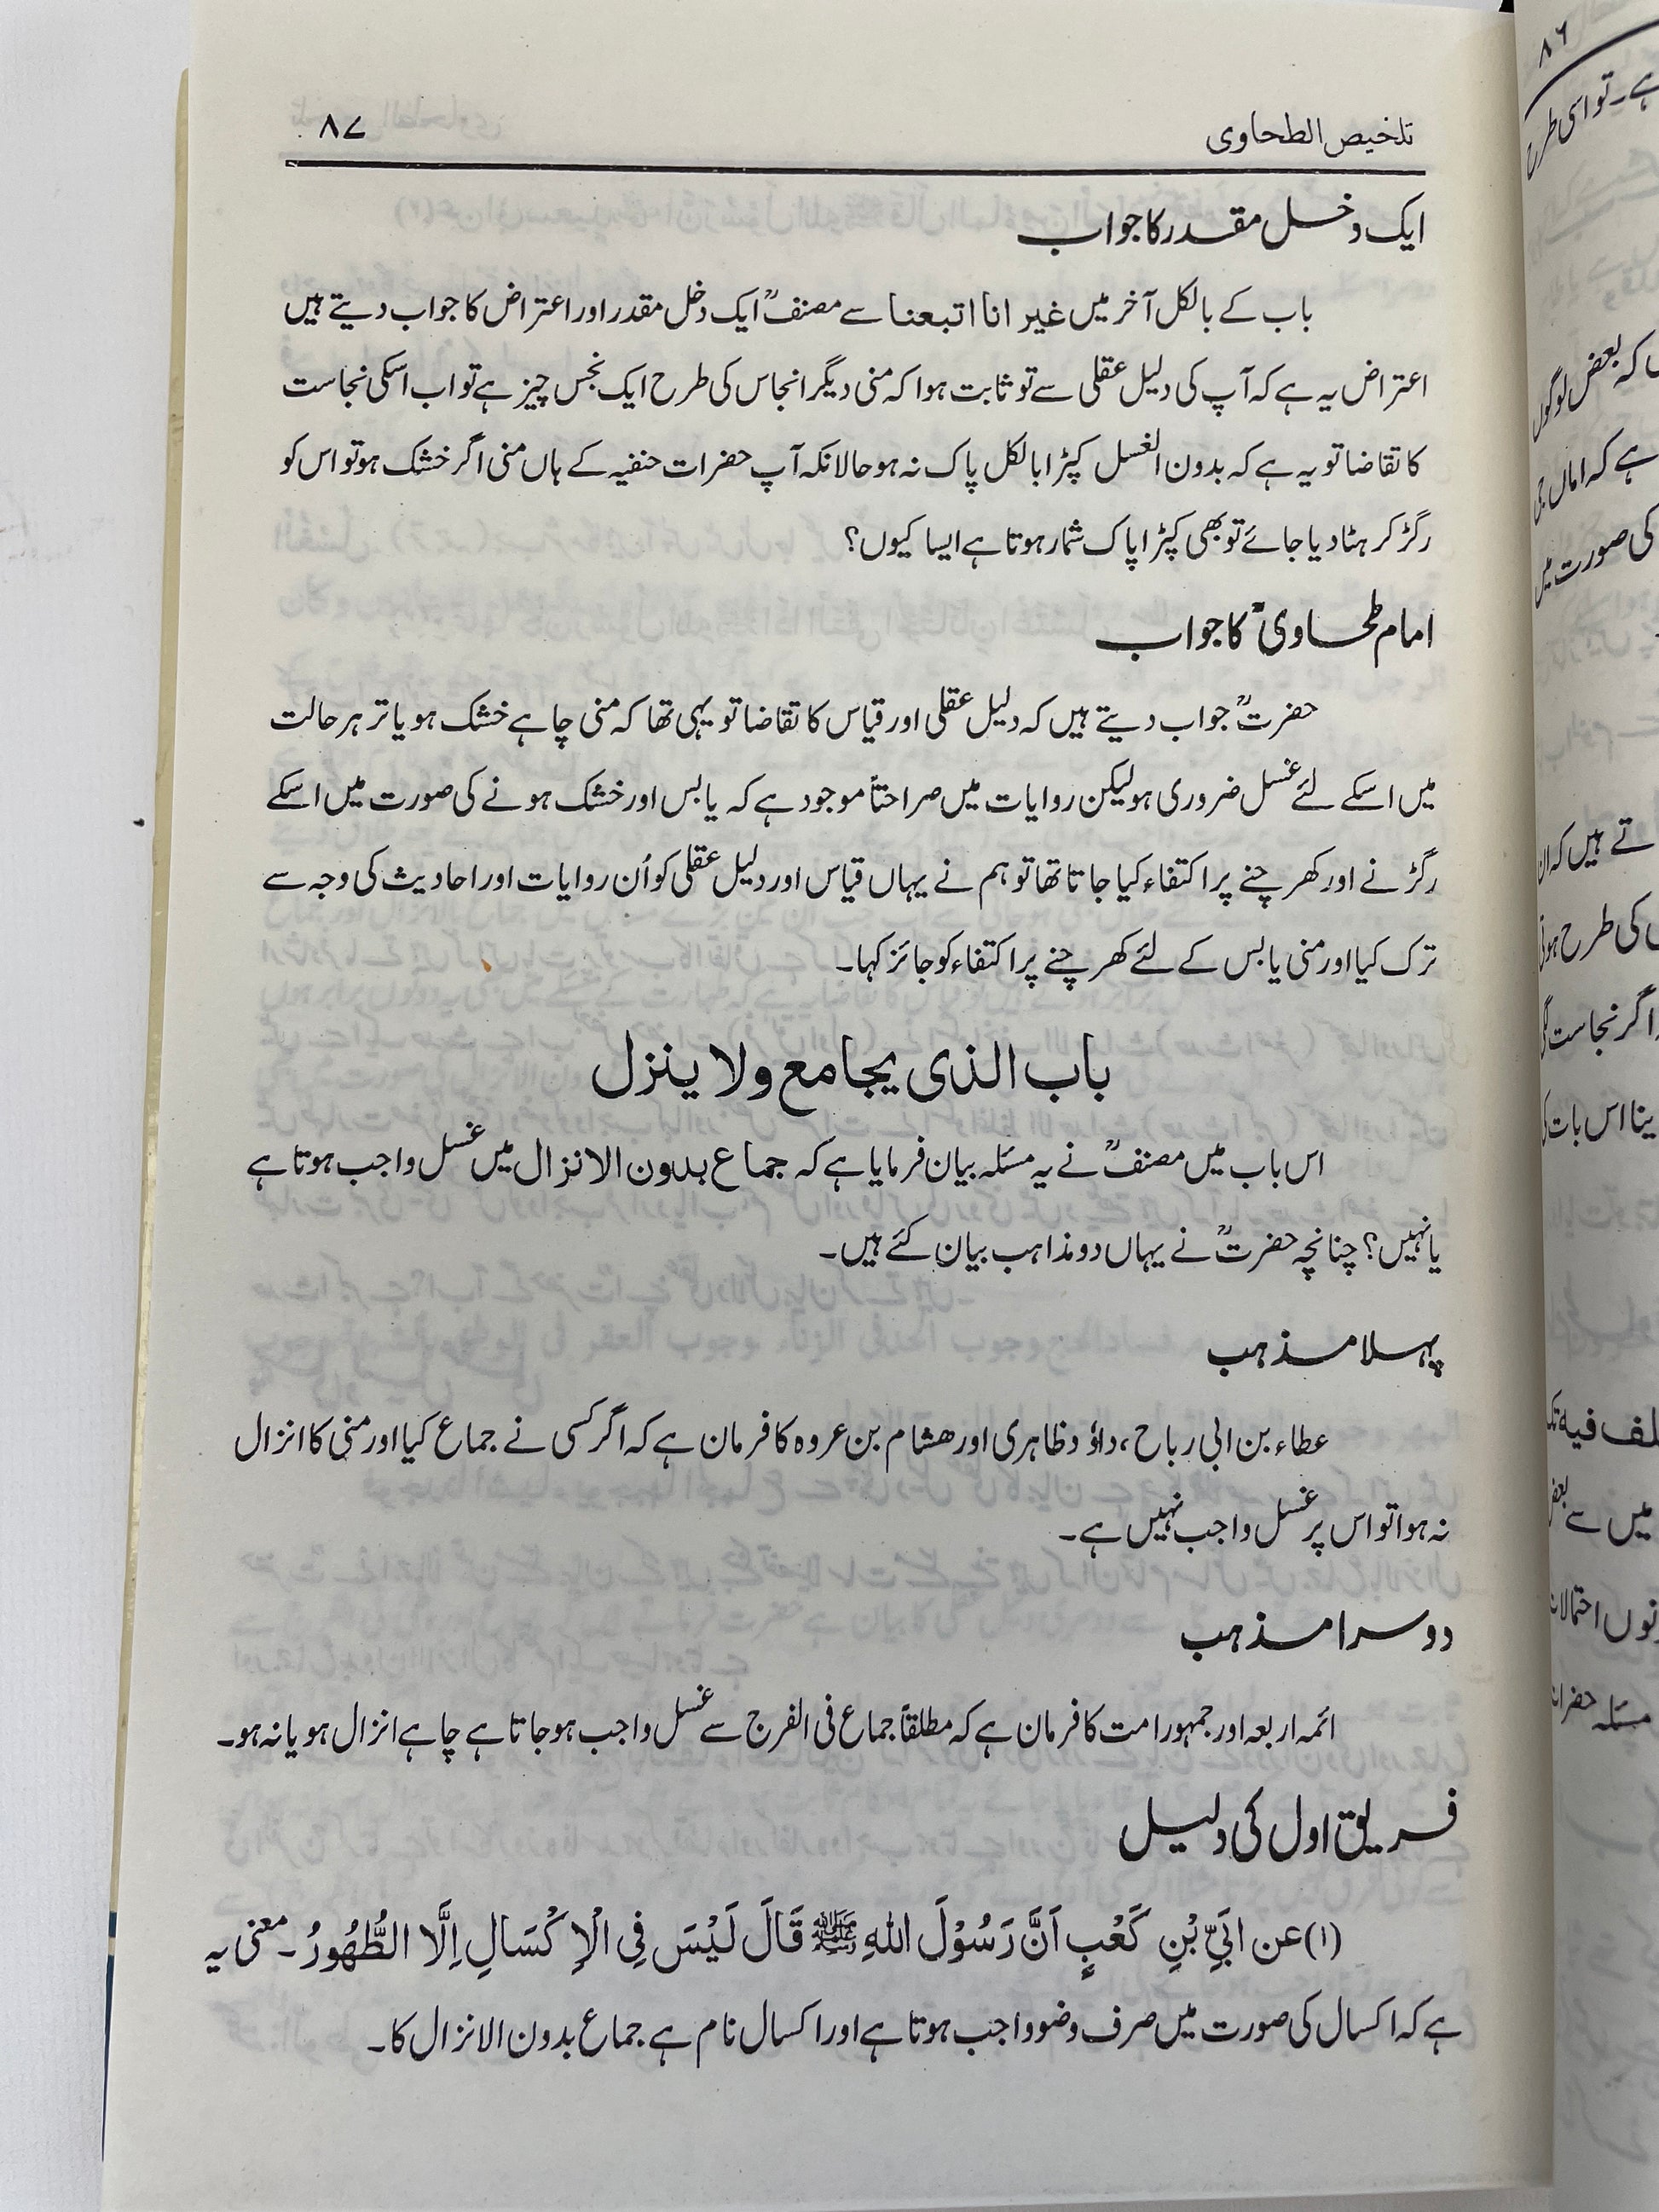 تلخیص الطحاوی ۸۷
ایک دخل مقدر کا جواب
باب کے بالکل آخر میں غیر انا اتبعنا سے مصنفؒ ایک دخل مقدر اور اعتراض کا جواب دیتے ہیں
اعتراض یہ ہے کہ آپ کی دلیل عقلی سے تو ثابت ہوا کہ منی دیگر انجاس کی طرح ایک نجس چیز ہے تو اب اسکی نجاست
کا تقاضا تو یہ ہے کہ بدون الغسل کپڑا بالکل پاک نہ ہو حالانکہ آپ حضرات حنفیہ کے ہاں منی اگر خشک ہو تو اس کو
رگڑ کر ہٹا دیا جائے تو بھی کپڑا پاک شمار ہوتا ہے ایسا کیوں؟
امام طحاویؒ کا جواب
حضرتؒ جواب دیتے ہیں کہ دلیل عقلی اور قیاس کا تقاضا تو یہی تھا کہ منی چاہے خشک ہو یا تر ہر حالت
میں اسکے لئے غسل ضروری ہو لیکن روایات میں صراحتاً موجود ہے کہ یابس اور خشک ہونے کی صورت میں اسکے
رگڑنے اور کھرچنے پر اکتفاء کیا جاتا تھا تو ہم نے یہاں قیاس اور دلیل عقلی کو اُن روایات اور احادیث کی وجہ سے
ترک کیا اور منی یابس کے لئے کھرچنے پر اکتفاء کو جائز کہا۔
باب الذی یجامع ولا ینزل
اس باب میں مصنفؒ نے یہ مسئلہ بیان فرمایا ہے کہ جماع بدون الانزال میں غسل واجب ہوتا ہے
یا نہیں؟ چنانچہ حضرتؒ نے یہاں دو مذاہب بیان کئے ہیں۔
پہلا مذہب
عطاء بن ابی رباح، داؤد ظاہری اور ھشام بن عروہ کا فرمان ہے کہ اگر کسی نے جماع کیا اور منی کا انزال
نہ ہوا تو اس پر غسل واجب نہیں ہے۔
دوسرا مذہب
ائمہ اربعہ اور جمہور امت کا فرمان ہے کہ مطلقاً جماع فی الفرج سے غسل واجب ہو جاتا ہے چاہے انزال ہو یا نہ ہو۔
فریق اول کی دلیل
(۱) عن ابَیِّ بْنِ کَعْبٍ اَنَّ رَسُوْلَ اللهِ ﷺ قَالَ لَیْسَ فِی الْاِکْسَالِ اِلَّا الطُّهُورُ۔ معنی یہ
ہے کہ اکسال کی صورت میں صرف وضو واجب ہوتا ہے اور اکسال نام ہے جماع بدون الانزال کا۔
۸۶
ہے۔ تو اسی طرح
کہ بعض لوگوں
ہے کہ اماں جی
کی صورت میں
تے ہیں کہ ان
کی طرح ہوتی
اگر نجاست
ینا اس بات
لف فیہ
میں سے بعض
نوں احتمالات
مسئلہ حضرات